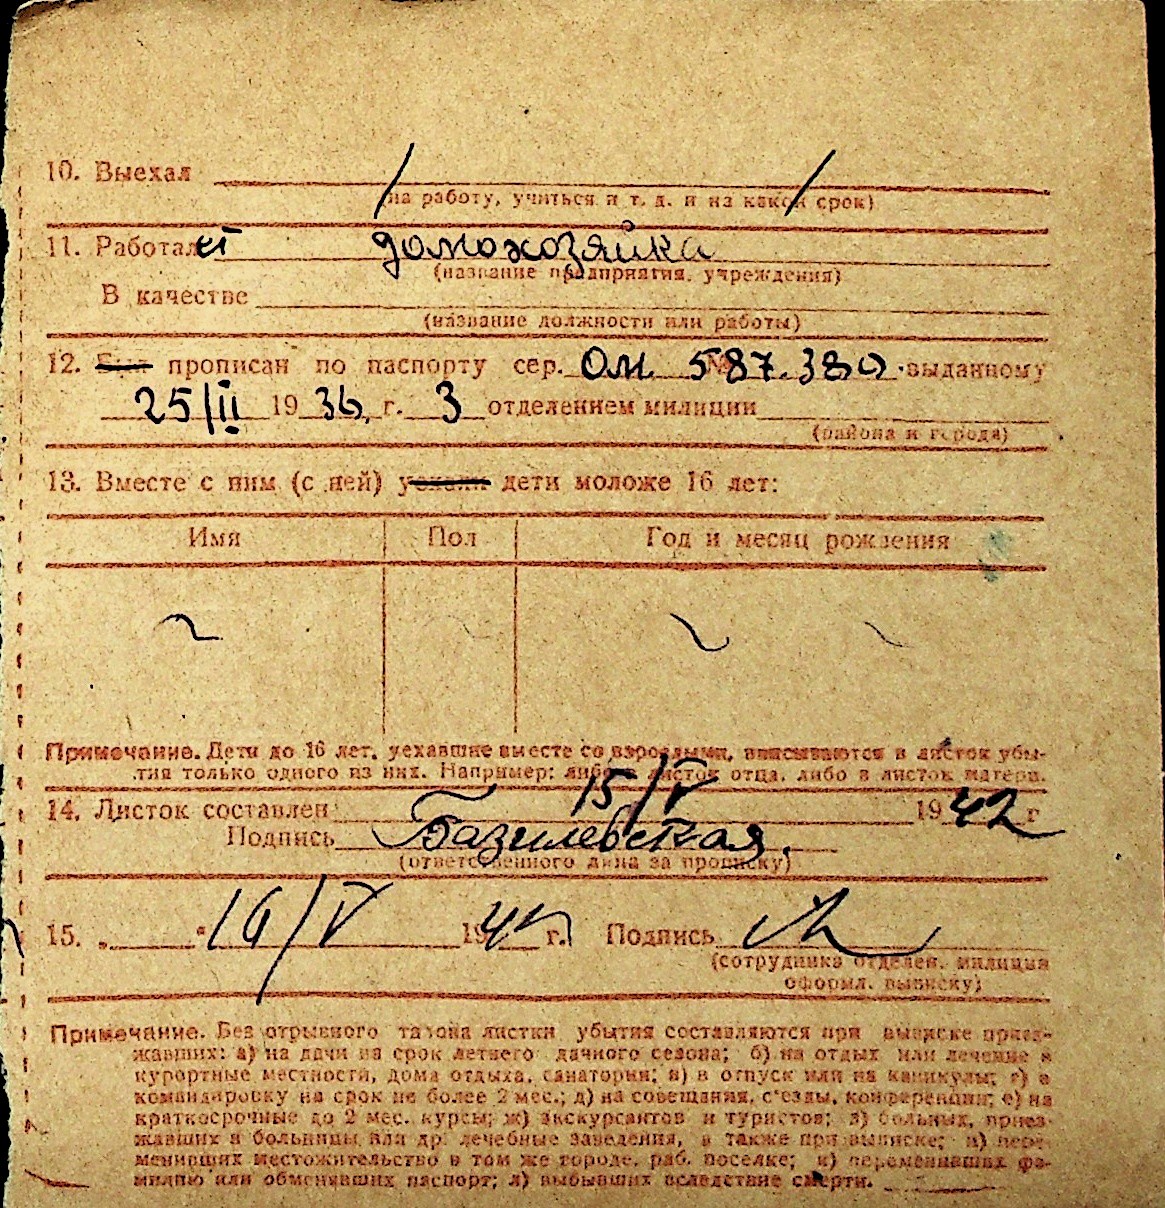 10. Выехал
(на работу, учиться и т. д. и на какой срок)
11. Работала домохозяйка
(название предприятия, учреждения)
В качестве
(название должности или работы)
12. Был прописан по паспорту сер. ОМ № 587.380 выданному
25/II 1936 г. 3 отделением милиции
(района и города)
13. Вместе с ним (с ней) уехали дети моложе 16 лет:
Имя Пол Год и месяц рождения
Примечание. Дети до 16 лет, уехавшие вместе со взрослыми, вписываются в листок убы-
тия только одного из них. Например: либо в листок отца, либо в листок матери.
14. Листок составлен 15/V 1942 г
Подпись Базилевская.
(ответственного лица за прописку)
15. „ “ 16/V 1942 г. Подпись
(сотрудника отделен. милиции
оформл. выписку)
Примечание. Без отрывного талона листки убытия составляются при выписке приез-
жавших: а) на дачи на срок летнего дачного сезона; б) на отдых или лечение в
курортные местности, дома отдыха, санатории; в) в отпуск или на каникулы; г) в
командировку на срок не более 2 мес.; д) на совещания, съезды, конференции; е) на
краткосрочные до 2 мес. курсы; ж) экскурсантов и туристов; з) больных, приез-
жавших в больницы или др. лечебные заведения, а также при выписке; и) пере-
менивших местожительство в том же городе, раб. поселке; к) переменивших фа-
милию или обменявших паспорт; л) выбывших вследствие смерти.